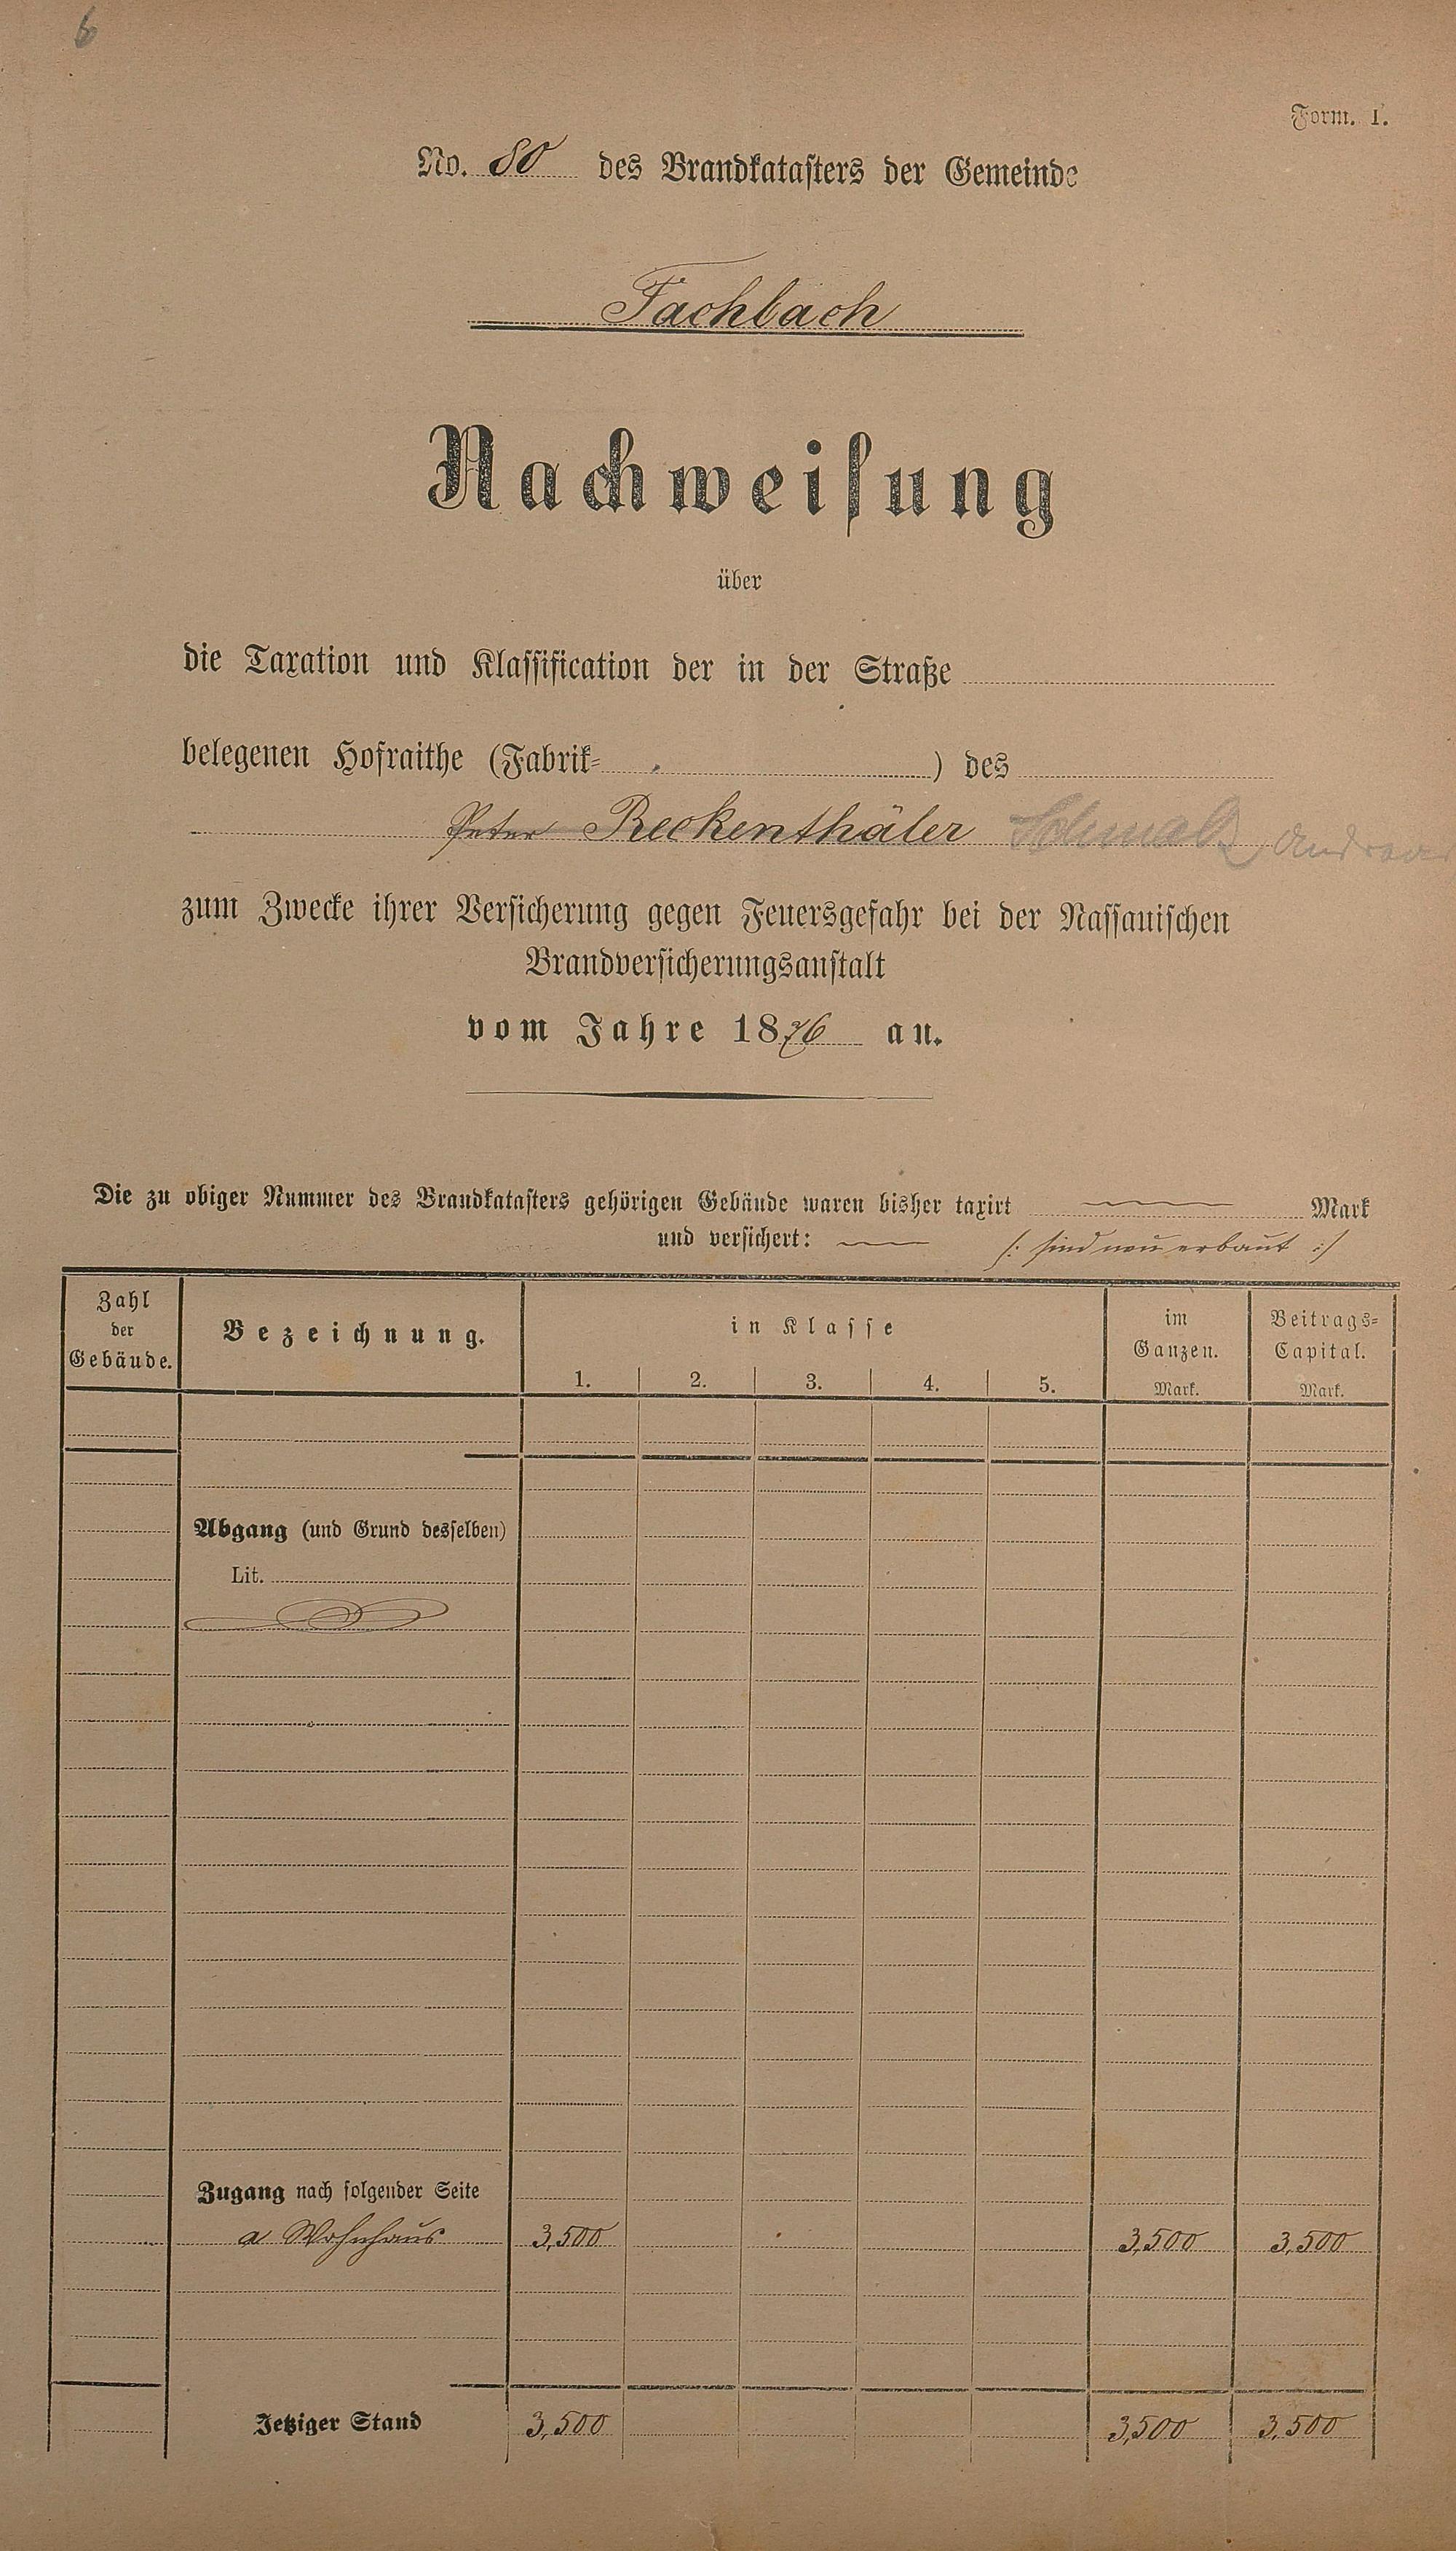 6
Form. 1.
No. 80 des Brandkatasters der Gemeinde
Fachbach
Nachweisung
über
die Taxation und Klassification der in der Straße
belegenen Hofraithe (Fabrik- ) des
Peter Reckenthäler Schmalz Andreas
zum Zwecke ihrer Versicherung gegen Feuersgefahr bei der Nassauischen
Brandversicherungsanstalt
vom Jahre 1876 an.
Die zu obiger Nummer des Brandkatasters gehörigen Gebäude waren bisher taxirt Mark
und versichert: /: sind neu erbaut :/
Zahl der Gebäude. Bezeichnung. in Klasse im Ganzen. Beitrags-Capital.
1. 2. 3. 4. 5. Mark. Mark.
Abgang (und Grund desselben)
Lit.
Zugang nach folgender Seite
a Wohnhaus 3,500 3,500 3,500
Jetziger Stand 3,500 3,500 3,500